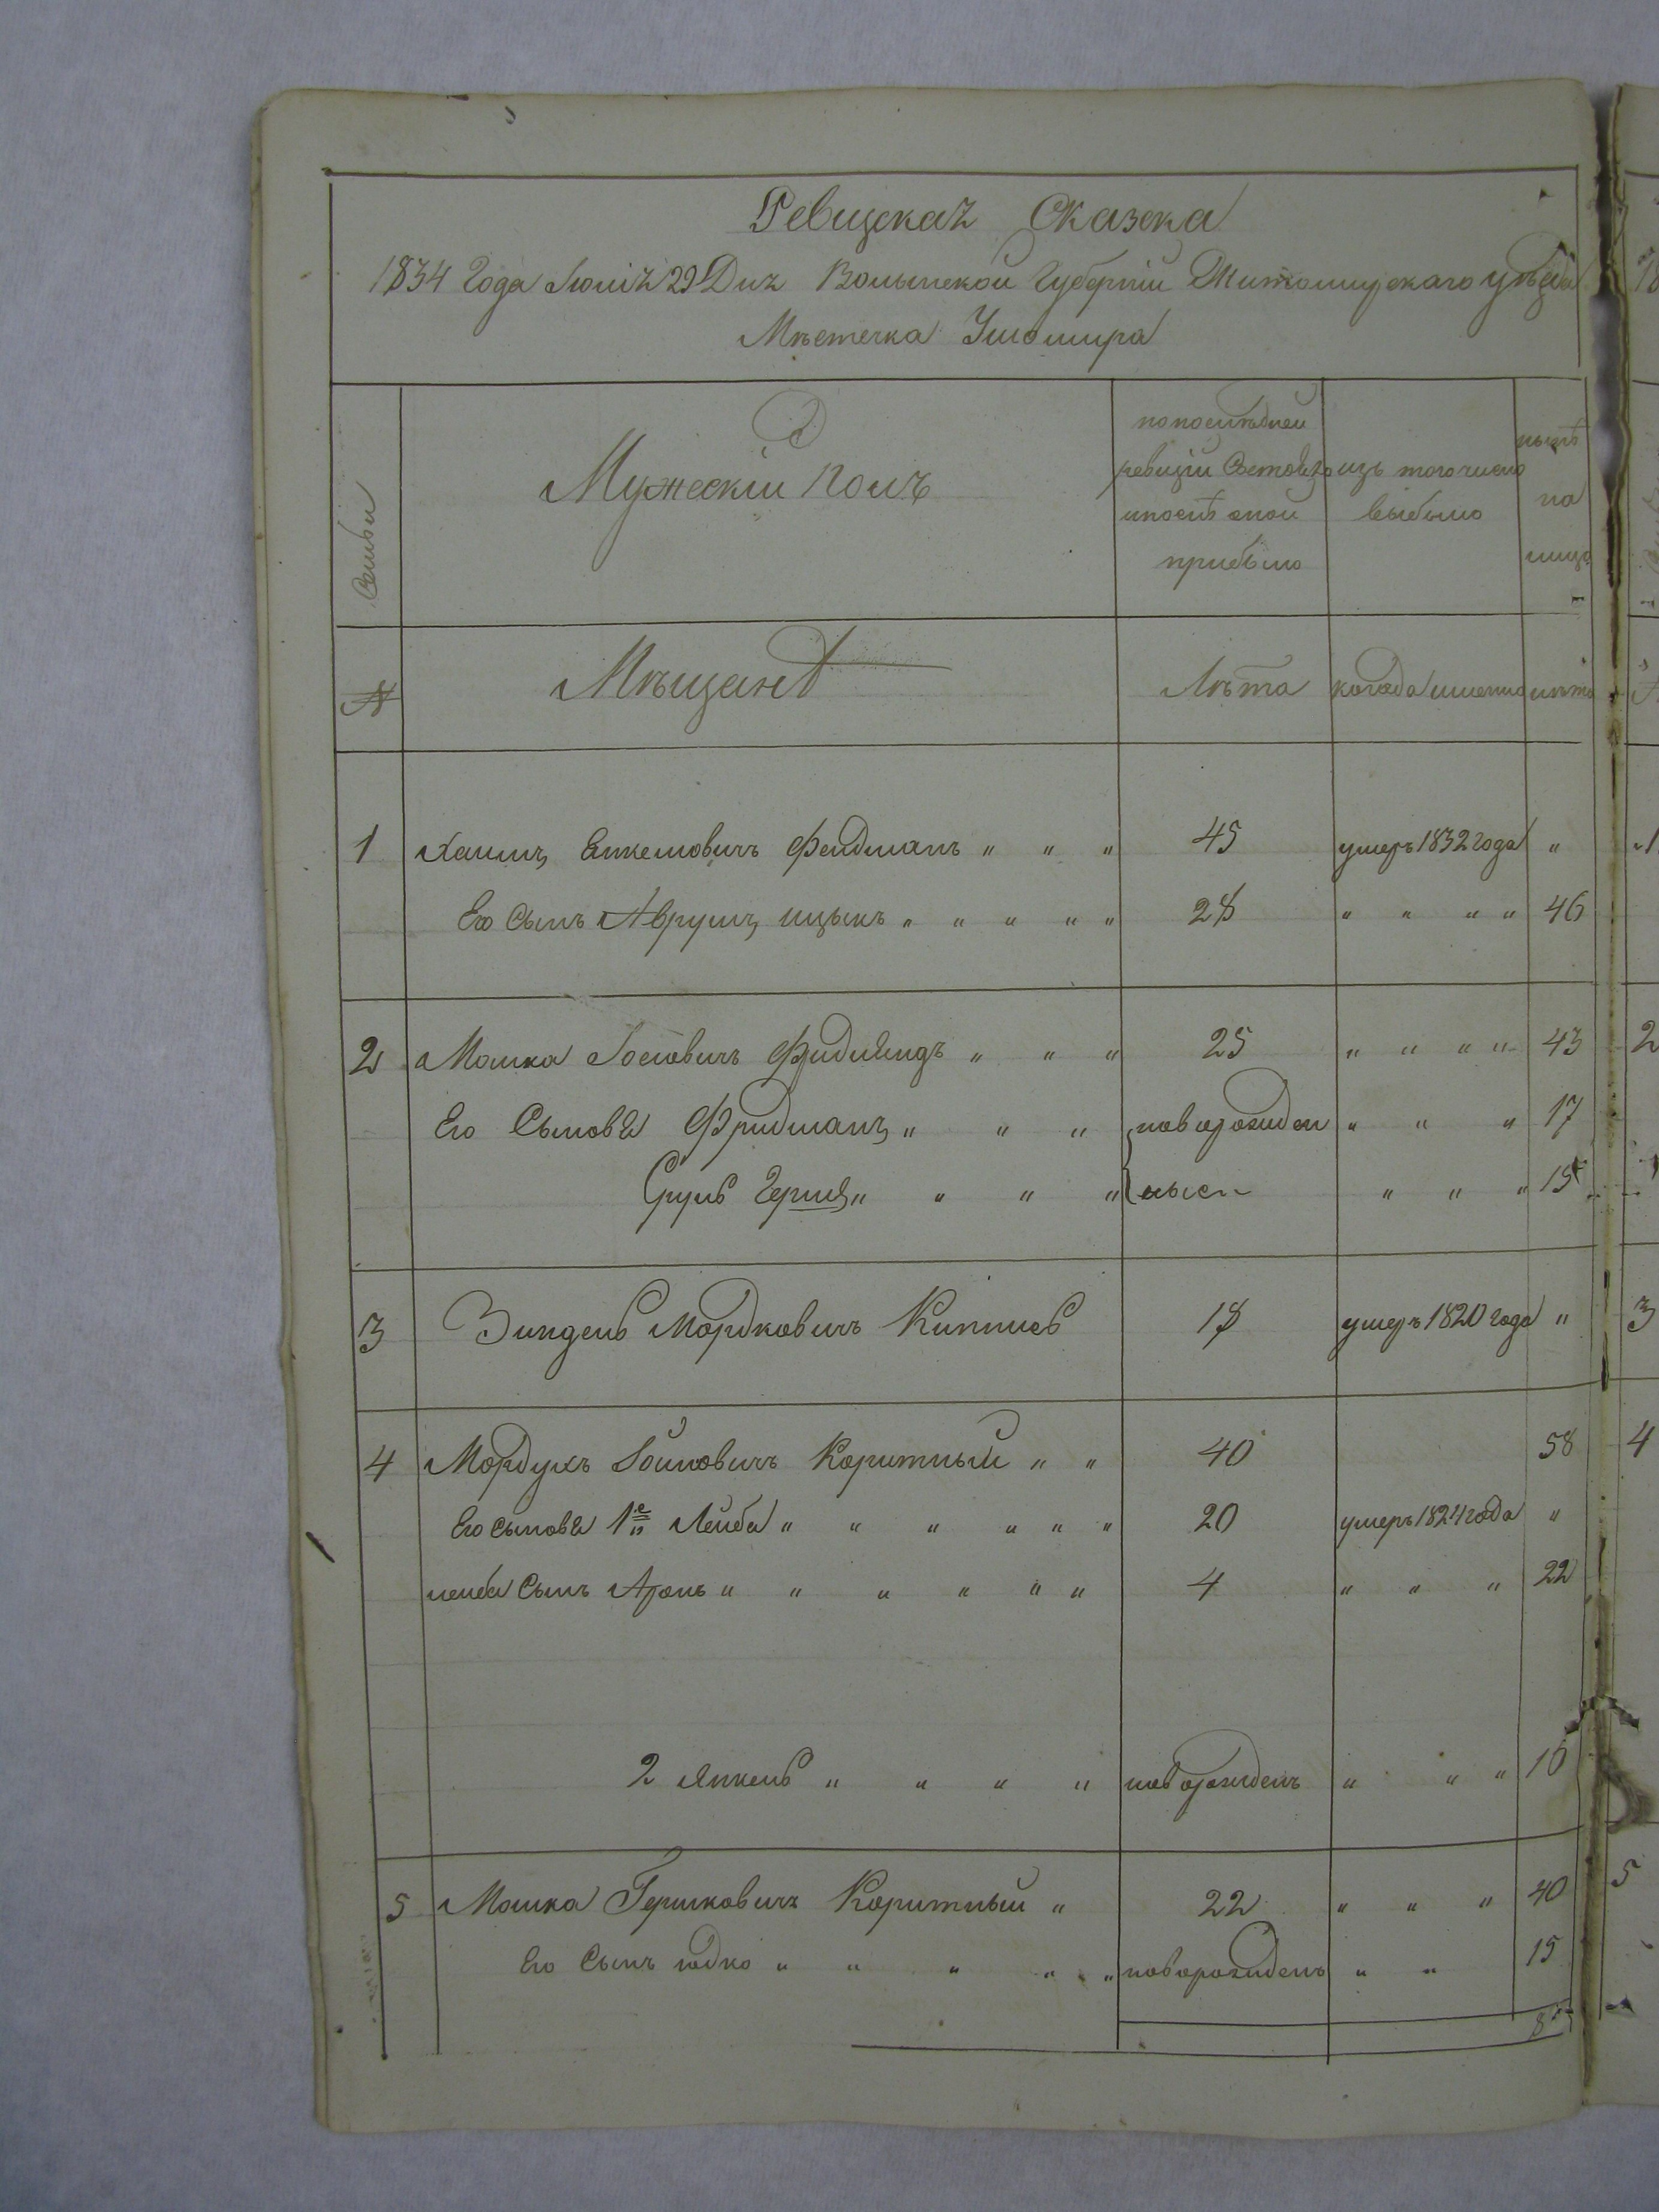 Ревизская Сказка
1834 Года Июлія 29 Дня Волынской Губерніи Житомирскаго уѣзда
Мѣстечка Ушомира
Семьи
Мужескій Полъ
по последней
ревизіи Состояло
и после оной
прибыло
изъ того число
выбыло
нынѣ
на
лицо
№
Мѣщанѣ
Лѣта
когода именно
лѣта
1 Хаимъ Янкелювичъ Фелдманъ " " " 45 умеръ 1832 года "
Его Сынъ Аврумъ ицыкъ " " " " " 28 " " " " 46
2 Мошка Іосіовичъ " " " 25 " " " " 43
Его Сыновя Фридманъ " " " новорожден " " " 17
Сруль Герша " " " " ныен " " " 15
3 Зиндель Мордковичъ 18 умеръ 1820 года "
4 Мордухъ Коритный " " 40 58
Его сыновя 1е Лейба " " " " " " 20 умеръ 1824 года "
лейба Сынъ Аронъ " " " " " " 4 " " " 22
2 Янкель " " " " новорожденъ " " " 10
5 Мошка Гершковичъ Коритный " 22 " " " 40
Его Сынъ юдко " " " " " новорожденъ " " 15
1
2
3
4
5